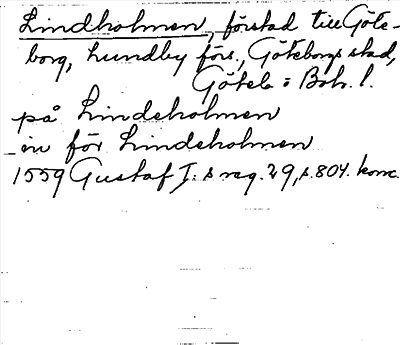 Lindholmen, förstad till Göte-
borg, Lundby förs., Göteborgs stad,
Göteb o Boh. l.
på Lindeholmen
in för Lindeholmen
1559 Gustaf I:s reg. 29, s. 804. konc.